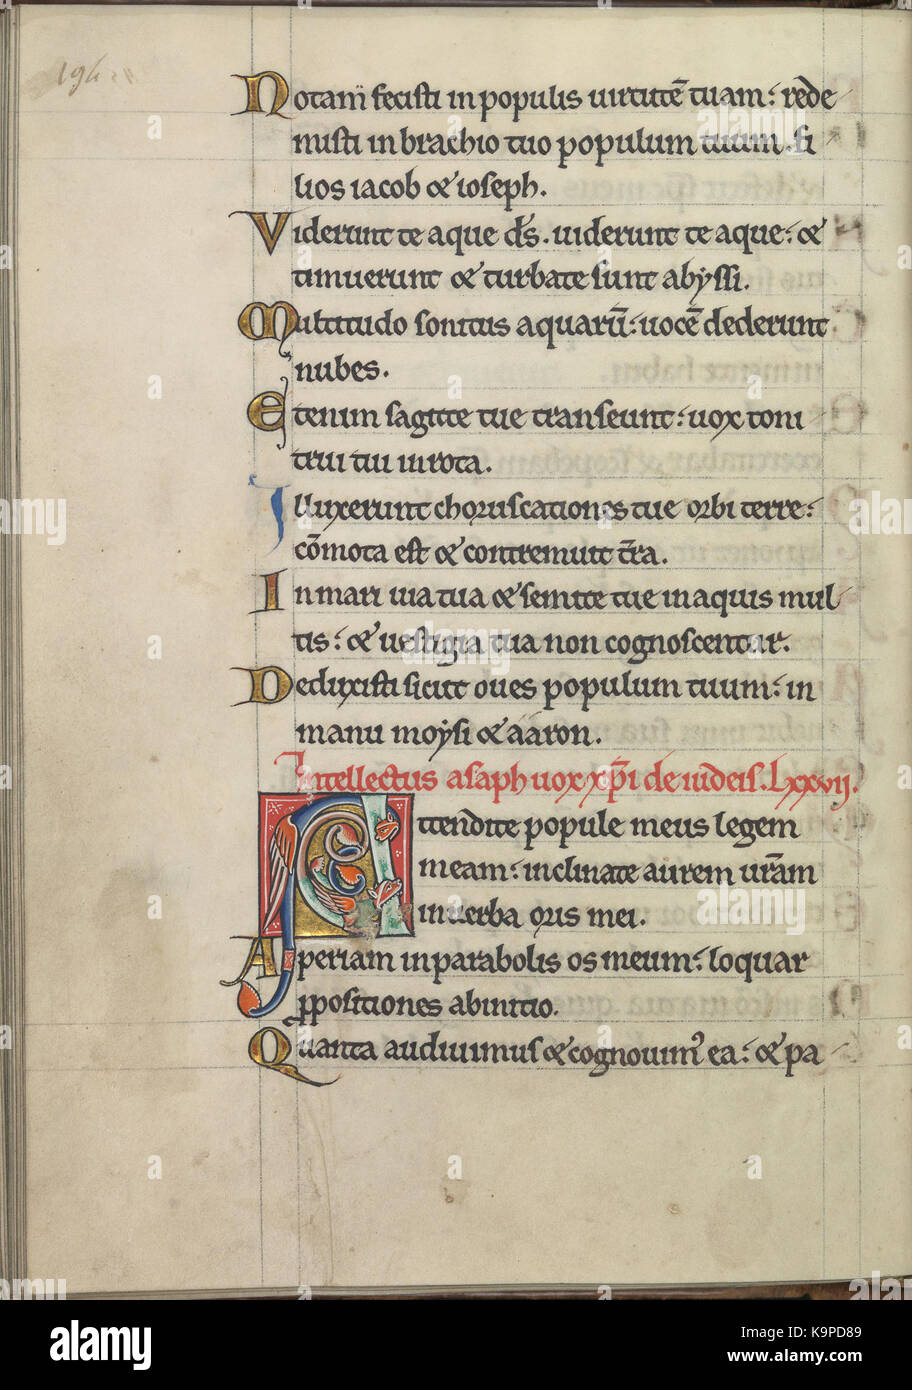 194
Notam fecisti in populis uirtutē tuam: rede
misti in brachio tuo populum tuum. fi
lios iacob & ioseph.
Viderunt te aque ds̄. uiderunt te aque: &
timuerunt & turbate sunt abyssi.
Multitudo sonitus aquarū: uocē dederunt
nubes.
Etenim sagitte tue transeunt: uox toni
trui tui in rota.
Illuxerunt choruscationes tue orbi terre:
cōmota est & contremuit tr̄a.
In mari uia tua & semite tue in aquis mul
tis: & uestigia tua non cognoscentur.
Deduxisti sicut oues populum tuum: in
manu moysi & aaron.
Intellectus asaph uox xp̄i de iudeis. Lxxvij.
Attendite popule meus legem
meam: inclinate aurem ur̄am
in uerba oris mei.
Aperiam in parabolis os meum: loquar
ꝓpositiones ab initio.
Quanta audiuimus & cognouim᾽ ea: & pa
alamy
Image ID: K9PD89
www.alamy.com